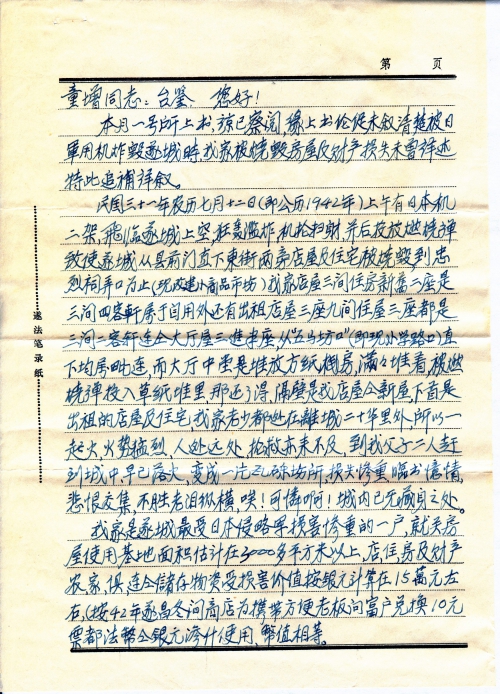 第 页
童增同志：台鉴 您好！
本月一号所上书，谅已察阅，缘上书伧促未叙清楚被日
軍用机炸毁遂城時，我家被烧毁房屋及财产损失未曾详述
特此追補详叙。
民国三十一年农历七月十二日(即公历1942年)上午有日本机
二架，飛临遂城上空，狂轰滥炸，机枪扫射，并后投放燃烧弹
致使遂城从县前门直下東街两旁店屋及住宅被烧毁，到忠
烈祠弄口为止(现改建小商品市场)我家店屋三间住房新旧二座是
三间四客軒属于自用外还有出租店屋三座九间住屋三座都是
三间二客轩连仝大厅屋三進半座，从"五马坊口"(即现小学路口)直
下均属毗连，而大厅中堂是堆放方纸棚房，满々堆着，被燃
烧弹投入草纸堆里，那还了得，隔壁是我店屋仝新屋，下面是
出租的店屋及住宅；我家老少都逃在離城二十华里外，所以一
起火，火势猛烈，人处远处，抢救亦来不及，到我父子二人赶
到城中，早已落火，变成一片瓦砾场所，损失惨重，睹书憶情，
悲恨交集，不胜老泪纵横，唉！可憐啊！城内已无藏身之处。
我家是遂城最受日本侵略軍损害惨重的一户，就关房
屋使用基地面积估计在3000多平方米以上，店、住房及财产
农家俱連仝儲存物资受损害价值按銀元计算在15萬元左
右，(按42年遂昌各间商店为携帶方便老板间富户兑换10元
票都法幣仝銀元等什使用，幣值相等。
遂法笔录纸